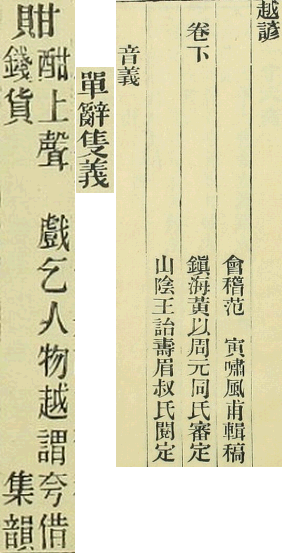 越諺
會稽范 寅嘯風甫輯稿
卷下 鎮海黃以周元同氏審定
山陰王詒壽眉叔氏閱定
音義
單辭隻義
酣上聲 戲乞人物越謂夸借
錢貨 集韻